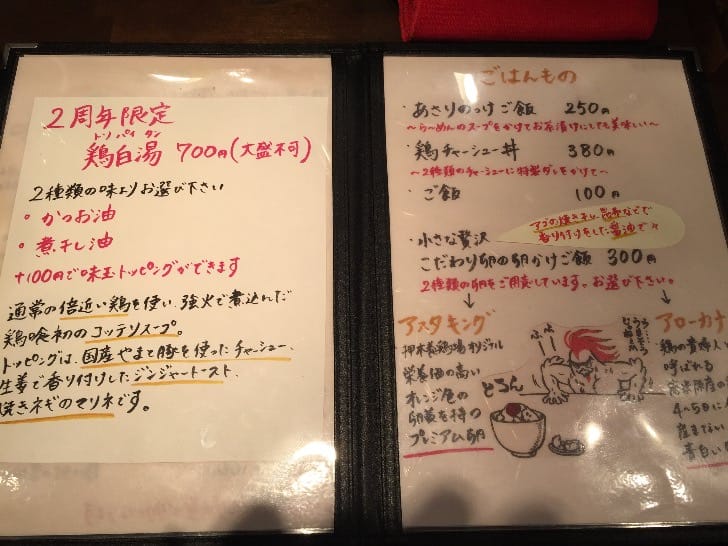 2周年限定
トリパイタン
鶏白湯 700円(大盛不可)
2種類の味よりお選び下さい
かつお油
煮干し油
+100円で味玉トッピングができます
通常の倍近い鶏を使い、強火で煮込んだ
鶏喰初のコッテリスープ。
トッピングは、国産やまと豚を使ったチャーシュー、
生姜で香り付けしたジンジャートースト、
焼きネギのマリネです。
ごはんもの
・あさりのっけご飯 250円
～らーめんのスープをかけてお茶漬けにしても美味しい!～
・鶏チャーシュー丼 380円
～2種類のチャーシューに特製ダレをかけて～
・ご飯 100円
アゴの焼き干し、昆布などで
香り付けをした醤油で
・小さな贅沢
こだわり卵の卵かけご飯 300円
2種類の卵をご用意しています。お選び下さい。
アスタキング
押本養鶏場オリジナル
栄養価の高い
オレンジ色の
卵黄を持つ
プレミアム卵
とろん
アローカナ
鶏の貴婦人と
呼ばれる
4～5日に
産まない
青白い